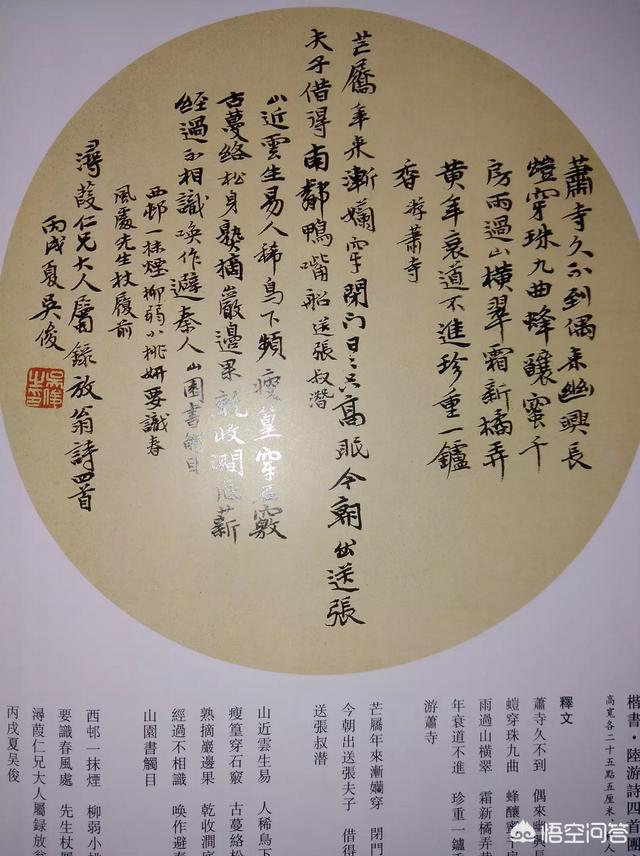 蕭寺久不到偶来幽興長
螘穿珠九曲蜂釀蜜千
房雨過山横翠霜新橘弄
黄年衰道不進珍重一鑪
香 游蕭寺
芒屩年来漸爛穿閉門日日只高眠今朝出送張
夫子借得南鄰鴨嘴船 送張叔潜
山近雲生易人稀鳥下頻瘦篁穿石竅
古蔓絡松身熟摘巖邊果乾收澗底薪
經過不相識喚作避秦人 山園書觸目
西邨一抹煙柳弱小桃妍要識春
風處先生杖履前
潯葭仁兄大人屬錄放翁詩四首
丙戌夏吳俊
楷書·陸游詩四首團
高寬各二十五點五厘米
人
釋文
蕭寺久不到 偶來幽興
螘穿珠九曲 蜂釀蜜
雨過山橫翠 霜新橘弄
年衰道不進 珍重一鑪
游蕭寺
芒屩年來漸斕穿 閉門
今朝出送張夫子 借得
送張叔潜
山近雲生易 人稀鳥下
瘦篁穿石竅 古蔓絡松
熟摘巖邊果 乾收澗底
經過不相識 喚作避秦
山園書觸目
西邨一抹煙 柳弱小桃
要識春風處 先生杖履
潯葭仁兄大人屬錄放翁
丙戌夏吳俊
悟空问答